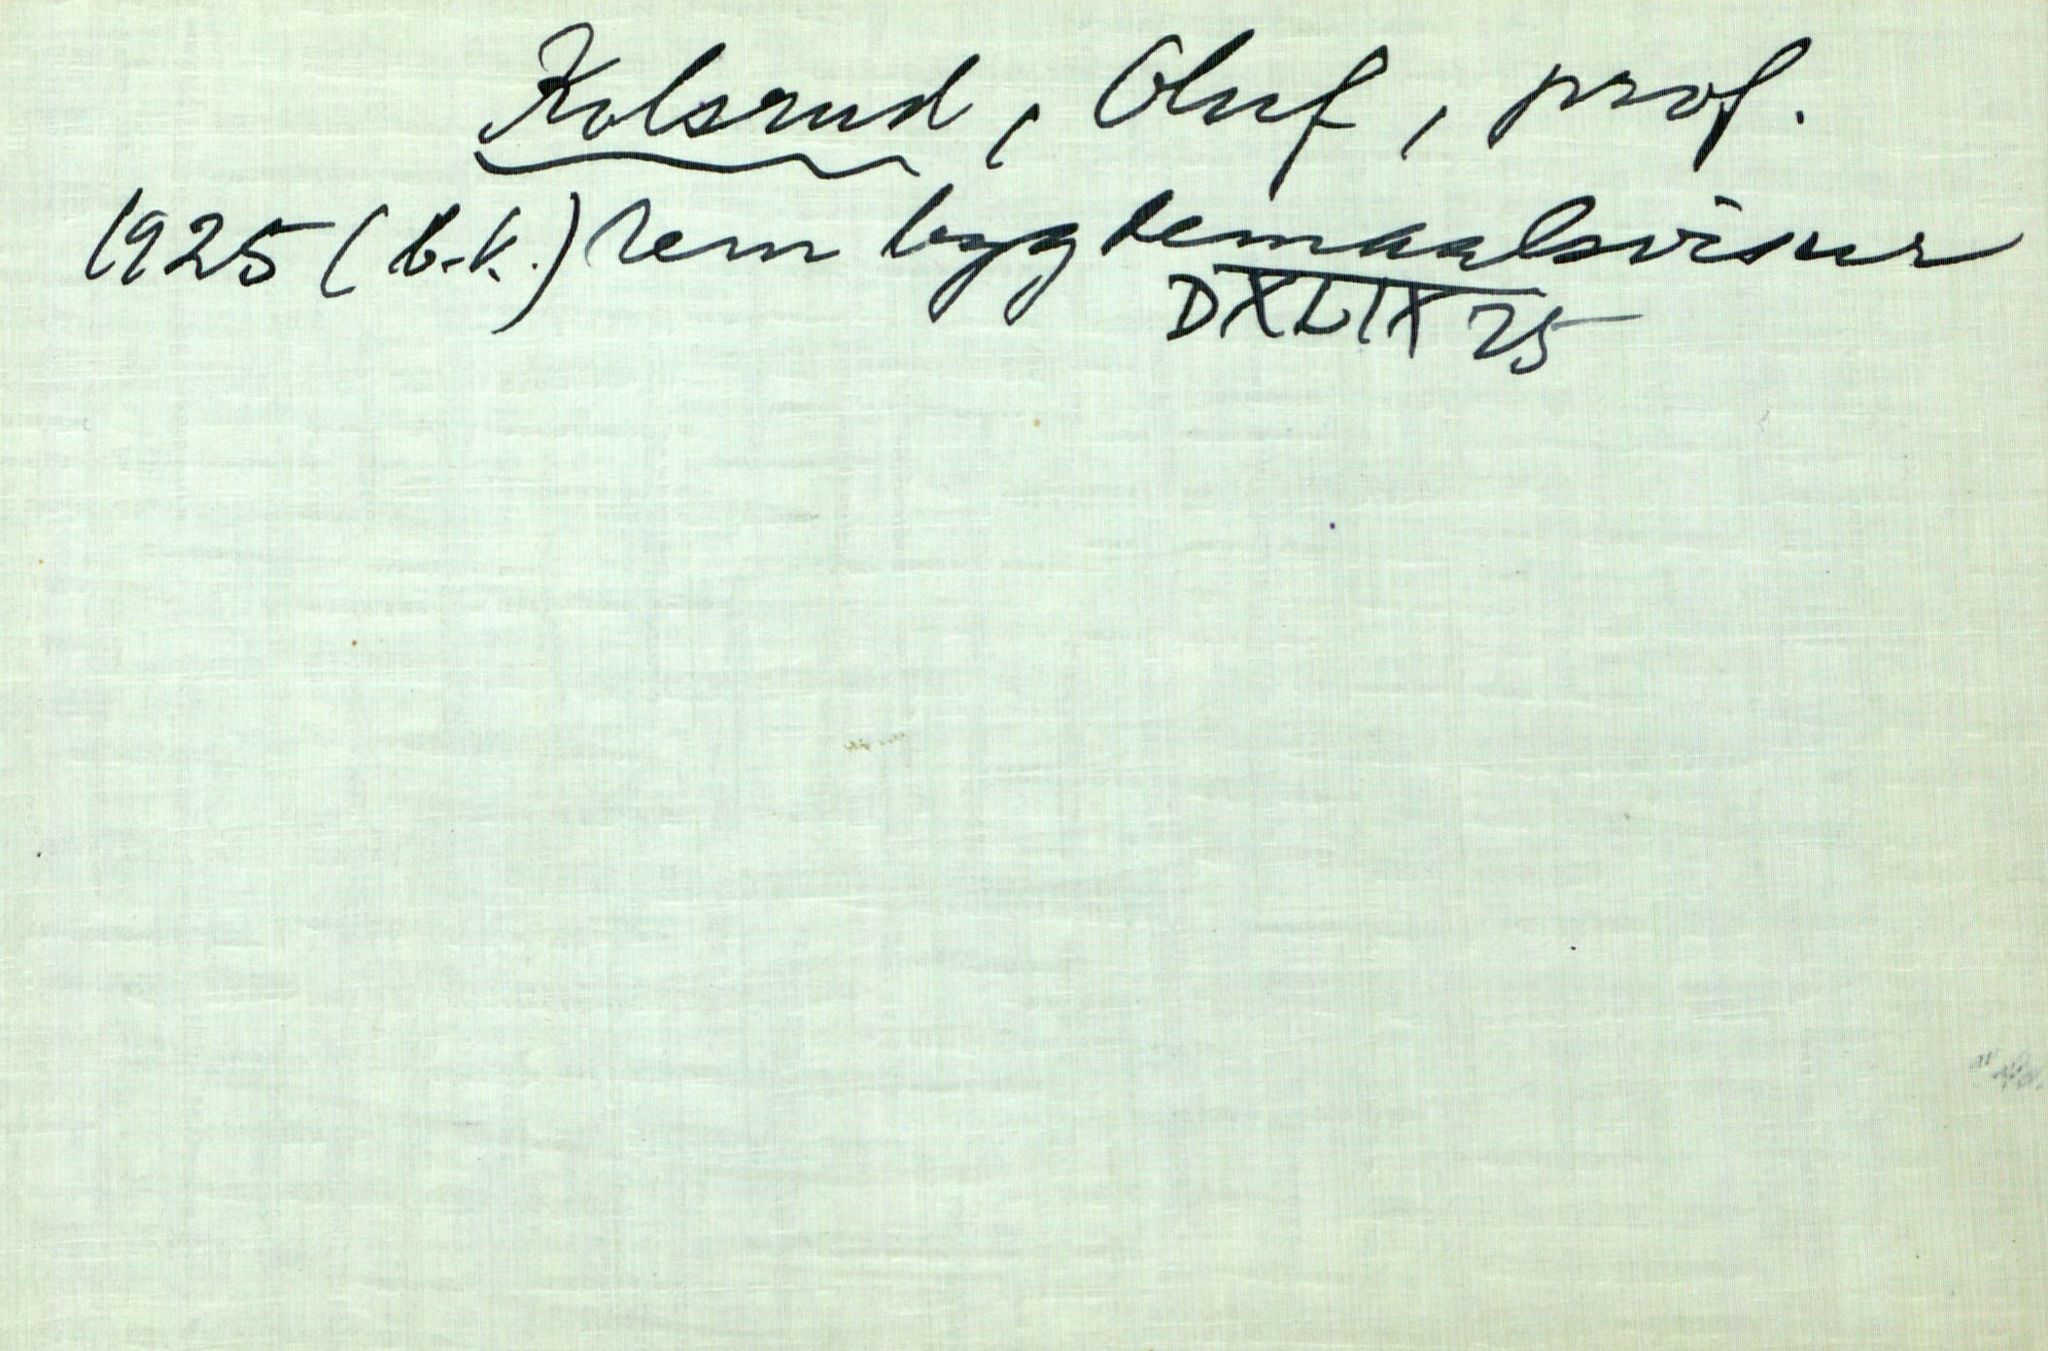 Kolsrud, Oluf, prof.
1925 (b.k.) bygdemaalsvisur
DXLIX 25